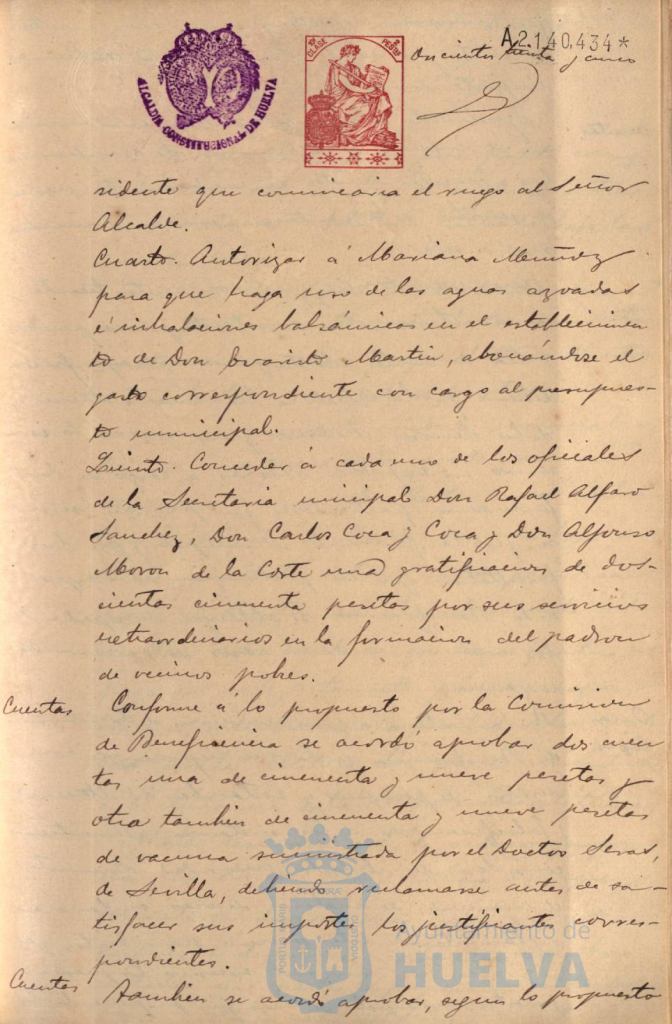 ALCALDIA CONSTITUCIONAL DE HUELVA
10ª CLASE 2 PESETAS
A2.140.434*
Doscientos treinta y cinco
sidente que comunicaria el ruego al Señor
Alcalde.
Cuarto. Autorizar á Mariana Muñoz
para que haga uso de las aguas azoadas
é inhalaciones balsámicas en el establecimien
to de Don Evaristo Martin, abonándose el
gasto correspondiente con cargo al presupues-
to municipal.
Quinto. Conceder á cada uno de los oficiales
de la Secretaria municipal Don Rafael Alfaro
Sanchez, Don Carlos Coca y Coca y Don Alfonso
Moron de la Corte una gratificacion de dos-
cientas cincuenta pesetas por sus servicios
extraordinarios en la formacion del padron
de vecinos pobres.
Cuentas Conforme á lo propuesto por la Comision
de Beneficencia se acordó aprobar dos cuen
tas una de cincuenta y nueve pesetas y
otra tambien de cincuenta y nueve pesetas
de vacuna suministrada por el Doctor Seras,
de Sevilla, debiendo reclamarse antes de sa-
tisfacer sus importes los justificantes corres-
pondientes.
Cuentas Tambien se acordó aprobar, segun lo propuesto
Ayuntamiento de
HUELVA